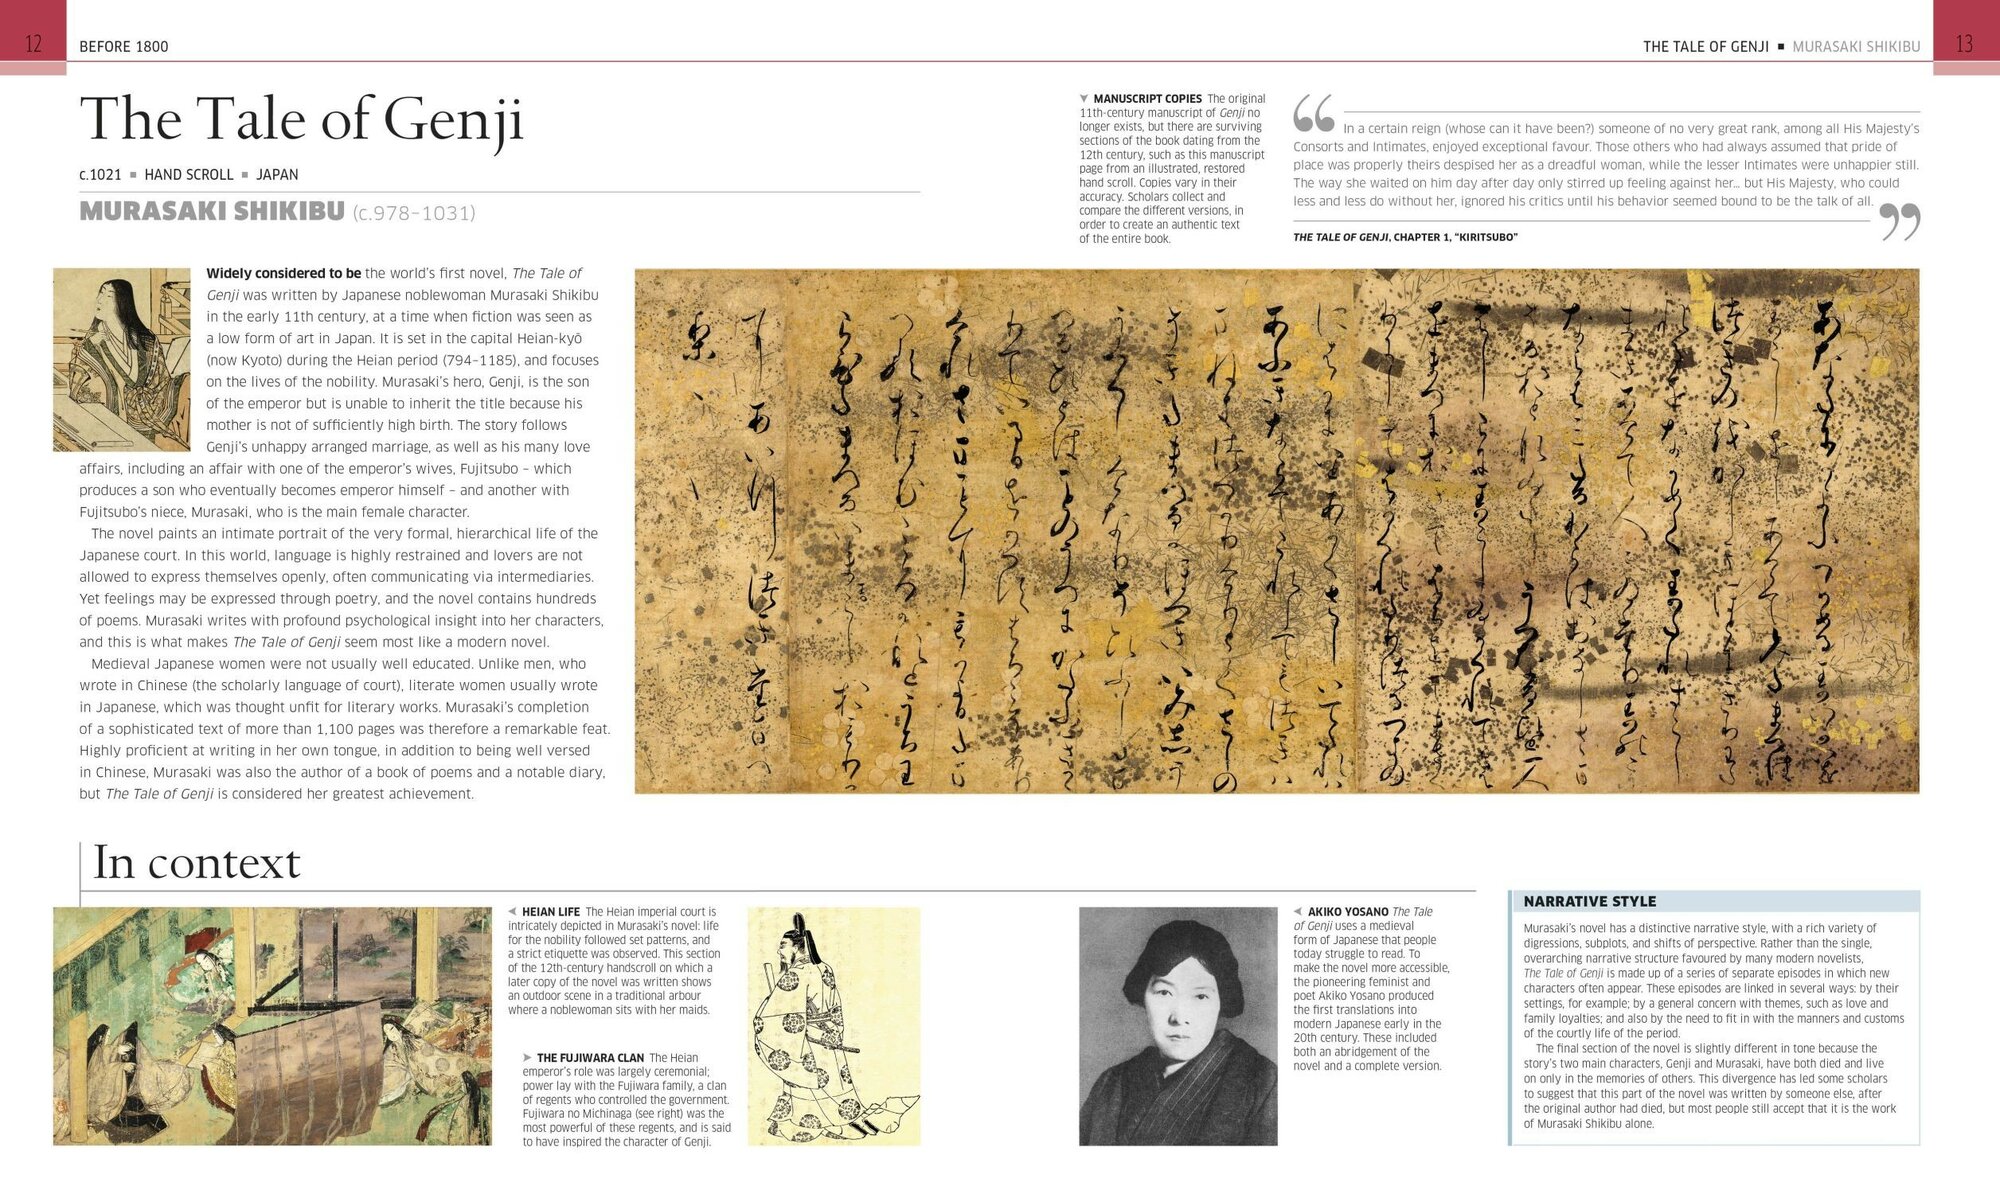 12
BEFORE 1800
THE TALE OF GENJI ■ MURASAKI SHIKIBU
13
The Tale of Genji
c.1021 ■ HAND SCROLL ■ JAPAN
MURASAKI SHIKIBU (c.978–1031)
Widely considered to be the world's first novel, The Tale of
Genji was written by Japanese noblewoman Murasaki Shikibu
in the early 11th century, at a time when fiction was seen as
a low form of art in Japan. It is set in the capital Heian-kyō
(now Kyoto) during the Heian period (794–1185), and focuses
on the lives of the nobility. Murasaki's hero, Genji, is the son
of the emperor but is unable to inherit the title because his
mother is not of sufficiently high birth. The story follows
Genji's unhappy arranged marriage, as well as his many love
affairs, including an affair with one of the emperor's wives, Fujitsubo – which
produces a son who eventually becomes emperor himself – and another with
Fujitsubo's niece, Murasaki, who is the main female character.
The novel paints an intimate portrait of the very formal, hierarchical life of the
Japanese court. In this world, language is highly restrained and lovers are not
allowed to express themselves openly, often communicating via intermediaries.
Yet feelings may be expressed through poetry, and the novel contains hundreds
of poems. Murasaki writes with profound psychological insight into her characters,
and this is what makes The Tale of Genji seem most like a modern novel.
Medieval Japanese women were not usually well educated. Unlike men, who
wrote in Chinese (the scholarly language of court), literate women usually wrote
in Japanese, which was thought unfit for literary works. Murasaki's completion
of a sophisticated text of more than 1,100 pages was therefore a remarkable feat.
Highly proficient at writing in her own tongue, in addition to being well versed
in Chinese, Murasaki was also the author of a book of poems and a notable diary,
but The Tale of Genji is considered her greatest achievement.
▼ MANUSCRIPT COPIES The original
11th-century manuscript of Genji no
longer exists, but there are surviving
sections of the book dating from the
12th century, such as this manuscript
page from an illustrated, restored
hand scroll. Copies vary in their
accuracy. Scholars collect and
compare the different versions, in
order to create an authentic text
of the entire book.
“ In a certain reign (whose can it have been?) someone of no very great rank, among all His Majesty's
Consorts and Intimates, enjoyed exceptional favour. Those others who had always assumed that pride of
place was properly theirs despised her as a dreadful woman, while the lesser Intimates were unhappier still.
The way she waited on him day after day only stirred up feeling against her... but His Majesty, who could
less and less do without her, ignored his critics until his behavior seemed bound to be the talk of all. ”
THE TALE OF GENJI, CHAPTER 1, “KIRITSUBO”
In context
◀ HEIAN LIFE The Heian imperial court is
intricately depicted in Murasaki's novel: life
for the nobility followed set patterns, and
a strict etiquette was observed. This section
of the 12th-century handscroll on which a
later copy of the novel was written shows
an outdoor scene in a traditional arbour
where a noblewoman sits with her maids.
▶ THE FUJIWARA CLAN The Heian
emperor's role was largely ceremonial;
power lay with the Fujiwara family, a clan
of regents who controlled the government.
Fujiwara no Michinaga (see right) was the
most powerful of these regents, and is said
to have inspired the character of Genji.
◀ AKIKO YOSANO The Tale
of Genji uses a medieval
form of Japanese that people
today struggle to read. To
make the novel more accessible,
the pioneering feminist and
poet Akiko Yosano produced
the first translations into
modern Japanese early in the
20th century. These included
both an abridgement of the
novel and a complete version.
NARRATIVE STYLE
Murasaki's novel has a distinctive narrative style, with a rich variety of
digressions, subplots, and shifts of perspective. Rather than the single,
overarching narrative structure favoured by many modern novelists,
The Tale of Genji is made up of a series of separate episodes in which new
characters often appear. These episodes are linked in several ways: by their
settings, for example; by a general concern with themes, such as love and
family loyalties; and also by the need to fit in with the manners and customs
of the courtly life of the period.
The final section of the novel is slightly different in tone because the
story's two main characters, Genji and Murasaki, have both died and live
on only in the memories of others. This divergence has led some scholars
to suggest that this part of the novel was written by someone else, after
the original author had died, but most people still accept that it is the work
of Murasaki Shikibu alone.